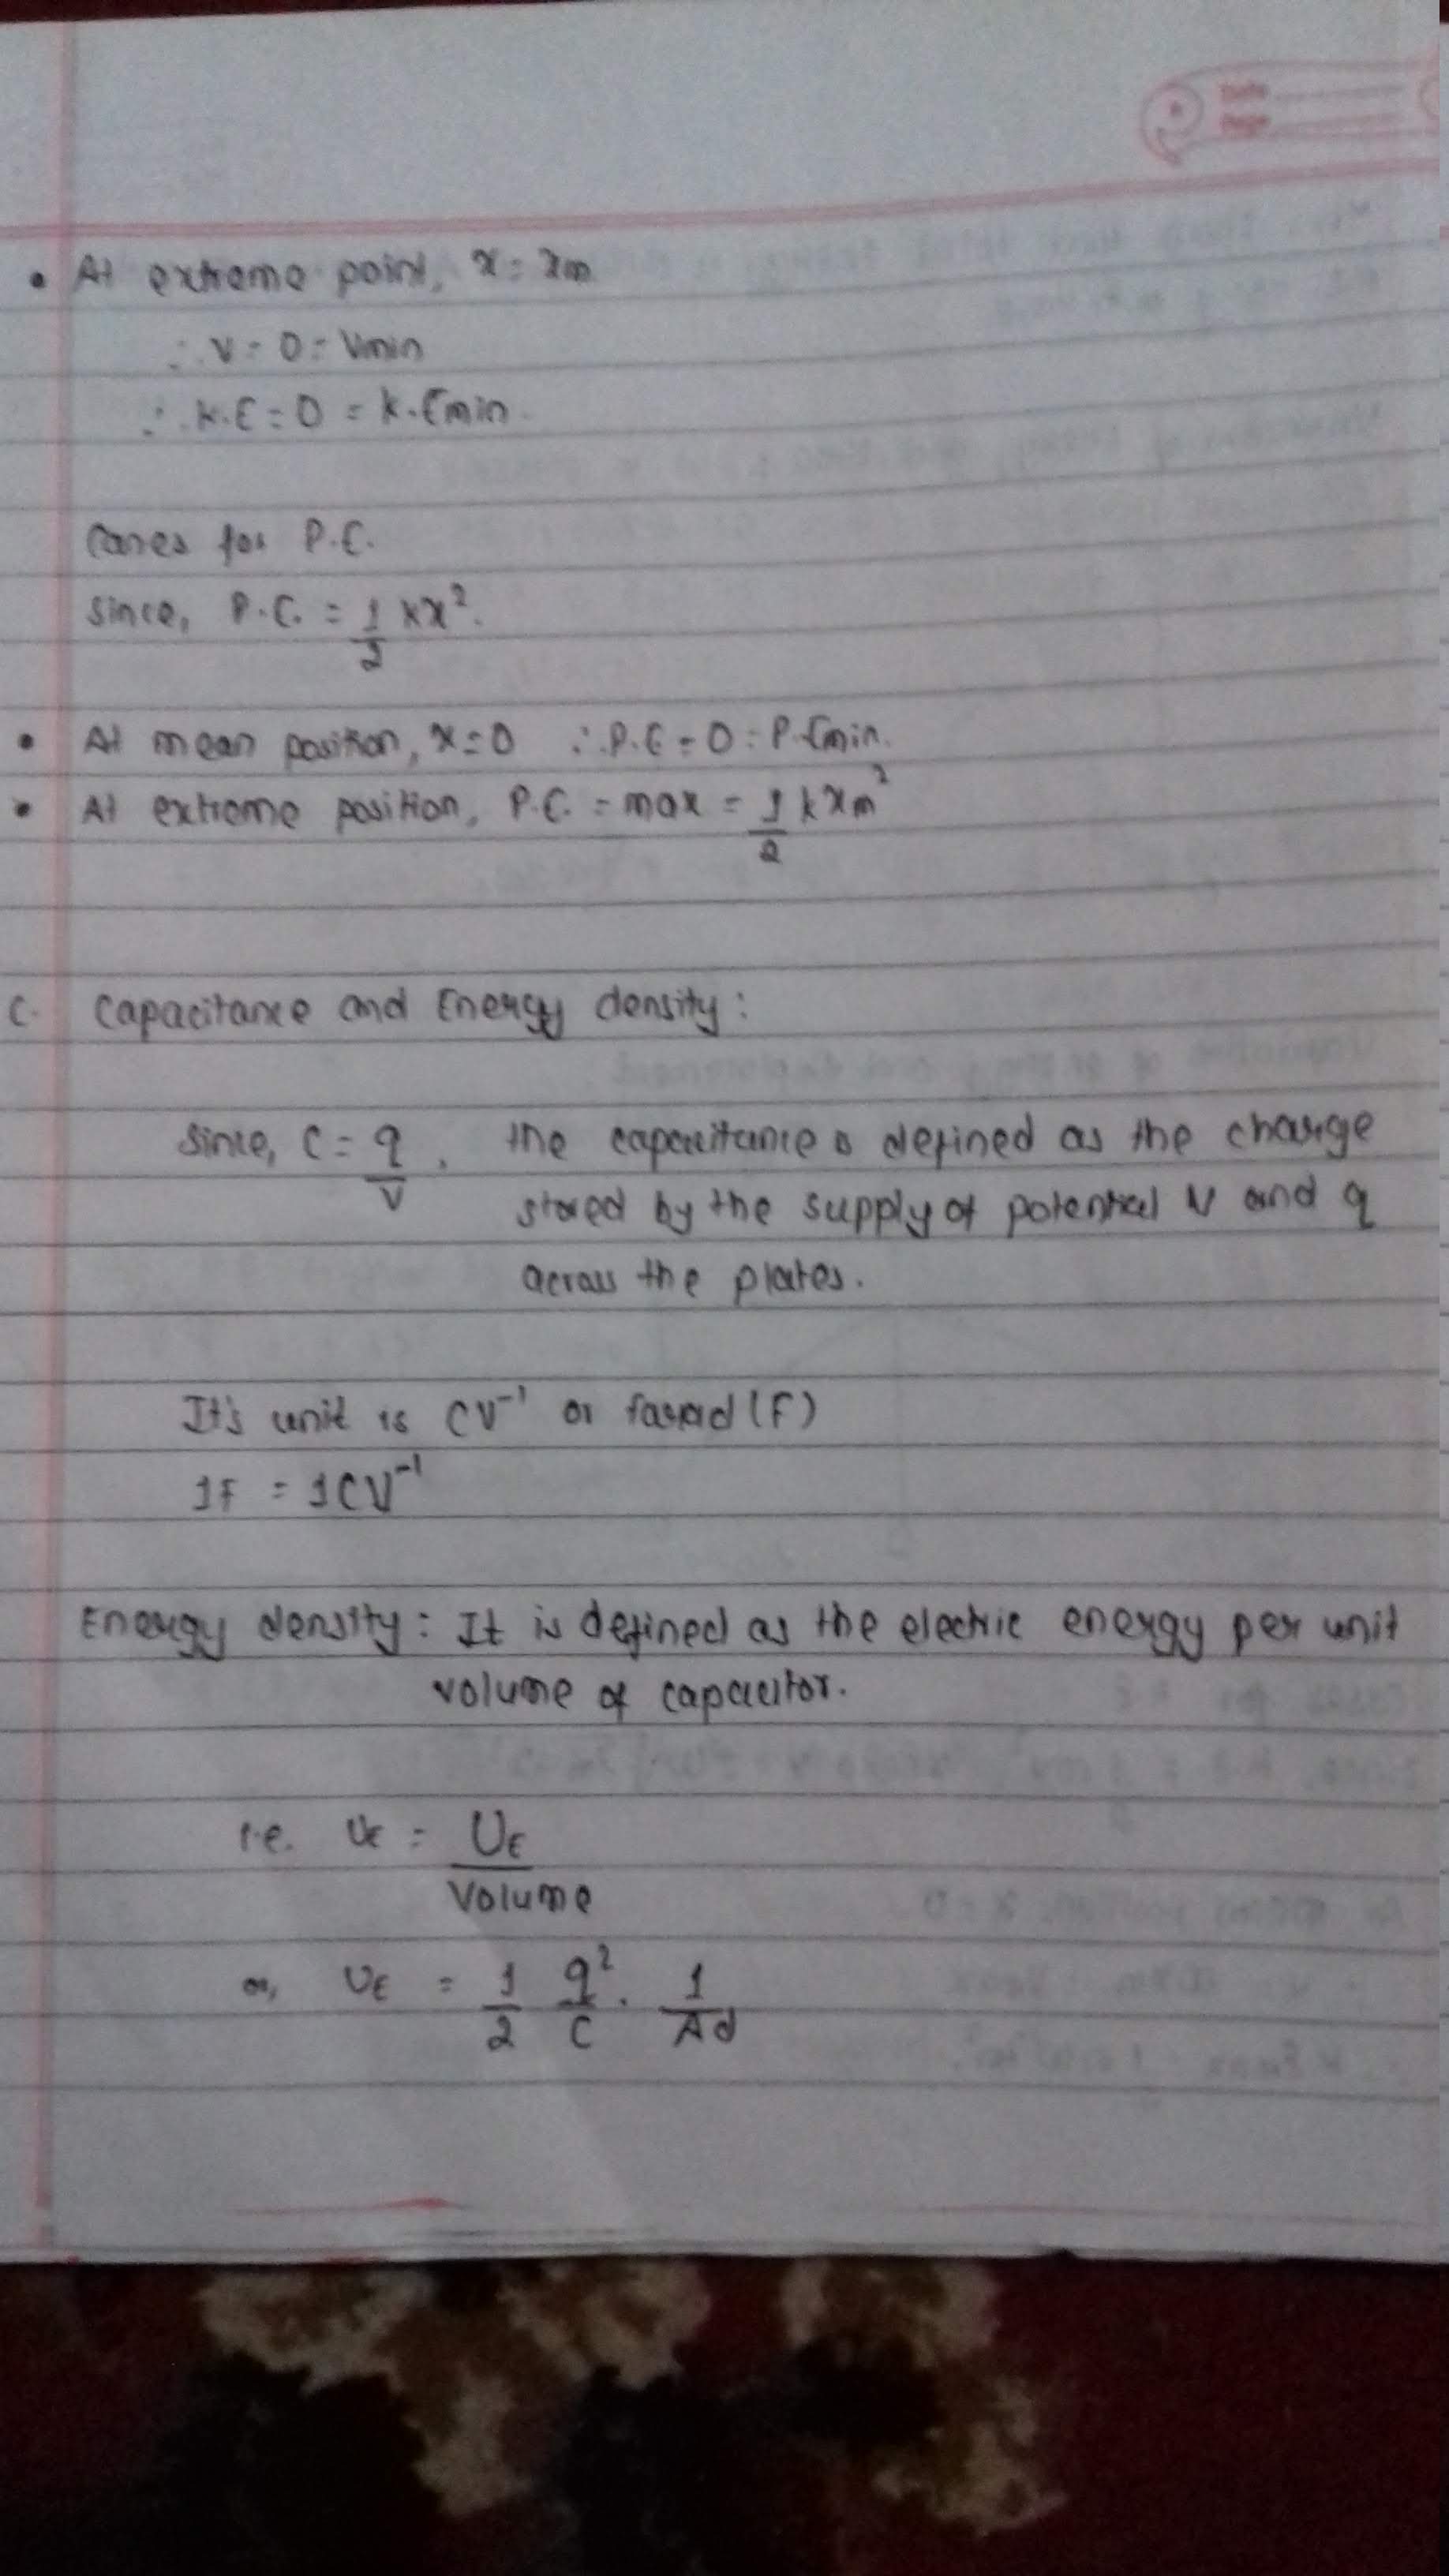 Date
Page
• At extreme point, x = xm
∴ v = 0 = Vmin
∴ K.E = 0 = K.Emin.
Cases for P.E.
Since, P.E. = 1/2 kx².
• At mean position, x = 0 ∴ P.E = 0 = P.Emin.
• At extreme position, P.E. = max = 1/2 kxm²
C. Capacitance and Energy density:
Since, C = q/V, the capacitance is defined as the charge
stored by the supply of potential V and q
across the plates.
It's unit is CV⁻¹ or farad (F)
1F = 1CV⁻¹
Energy density: It is defined as the electric energy per unit
volume of capacitor.
i.e. UE = UE/Volume
or, UE = 1/2 q²/C · 1/Ad